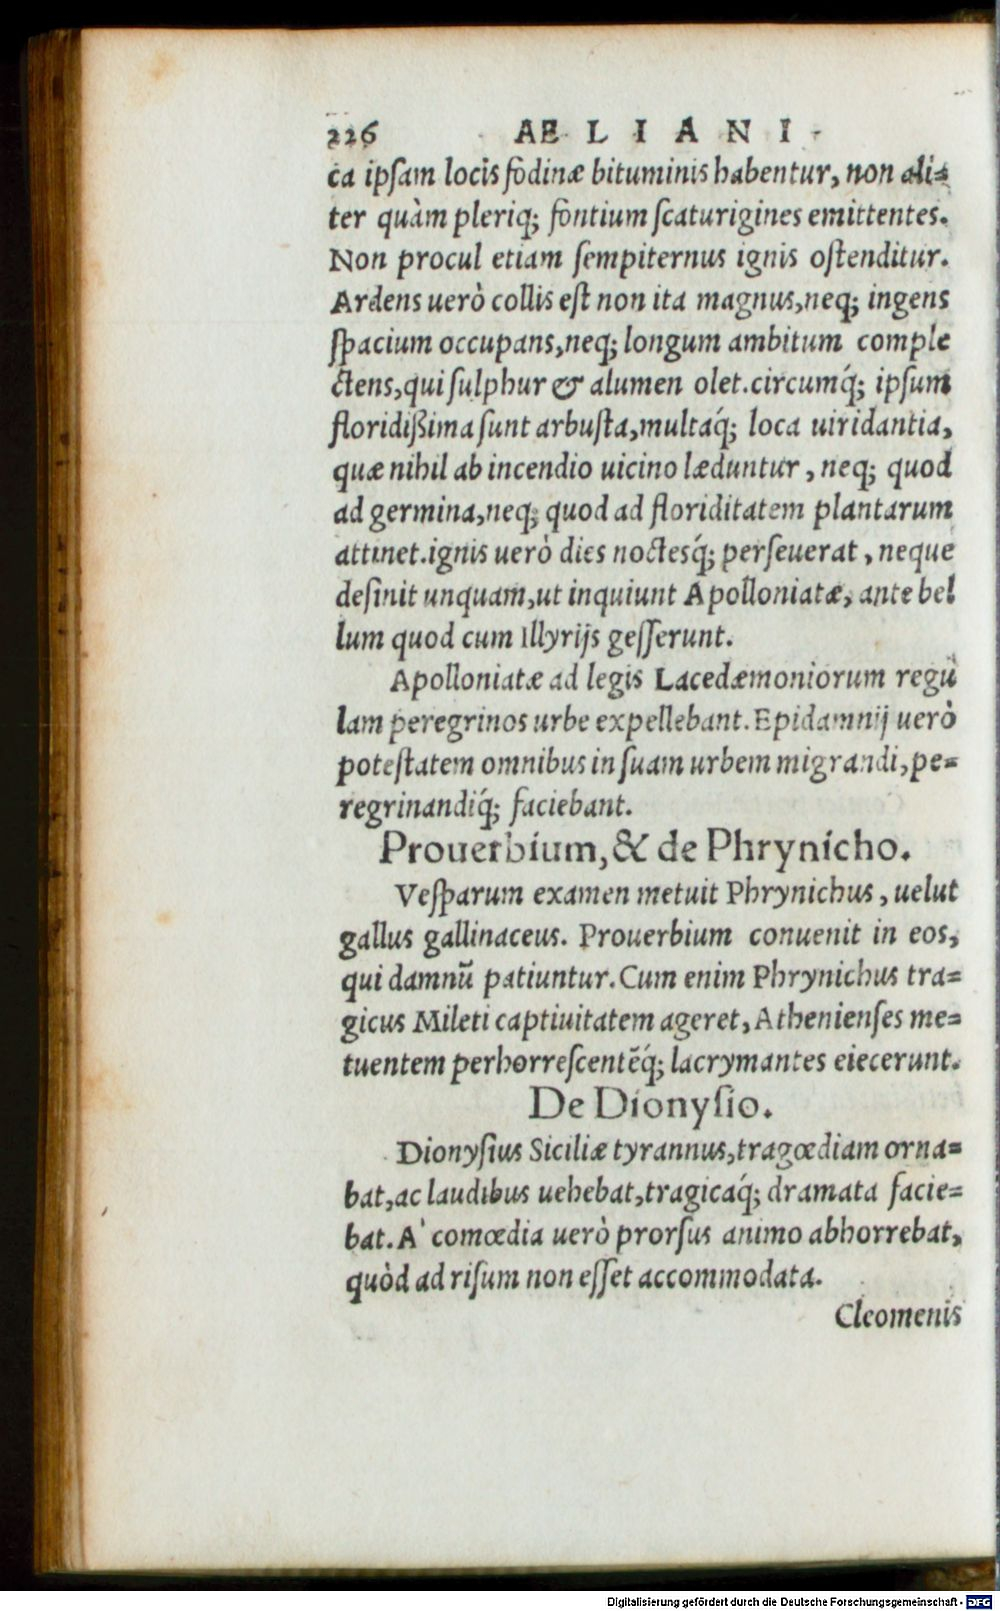 226 AE L I A N I
ca ipſam locis fodinæ bituminis habentur, non ali=
ter quàm pleriq; fontium ſcaturigines emittentes.
Non procul etiam ſempiternus ignis oſtenditur.
Ardens uerò collis eſt non ita magnus, neq; ingens
ſpacium occupans, neq; longum ambitum comple
ctens, qui ſulphur & alumen olet. circumq́; ipſum
floridißima ſunt arbuſta, multaq́; loca uiridantia,
quæ nihil ab incendio uicino læduntur, neq; quod
ad germina, neq; quod ad floriditatem plantarum
attinet. ignis uerò dies noctesq́; perſeuerat, neque
deſinit unquam, ut inquiunt Apolloniatæ, ante bel
lum quod cum Illyrijs geſſerunt.
Apolloniatæ ad legis Lacedæmoniorum regu
lam peregrinos urbe expellebant. Epidamnij uerò
poteſtatem omnibus in ſuam urbem migrandi, pe=
regrinandiq́; faciebant.
Prouerbium, & de Phrynicho.
Veſparum examen metuit Phrynichus, uelut
gallus gallinaceus. Prouerbium conuenit in eos,
qui damnū patiuntur. Cum enim Phrynichus tra=
gicus Mileti captiuitatem ageret, Athenienſes me=
tuentem perhorreſcentēq́; lacrymantes eiecerunt.
De Dionyſio.
Dionyſius Siciliæ tyrannus, tragœdiam orna=
bat, ac laudibus uehebat, tragicaq́; dramata facie=
bat. A' comœdia uerò prorſus animo abhorrebat,
quòd ad riſum non eſſet accommodata.
Cleomenis
Digitalisierung gefördert durch die Deutsche Forschungsgemeinschaft - DFG